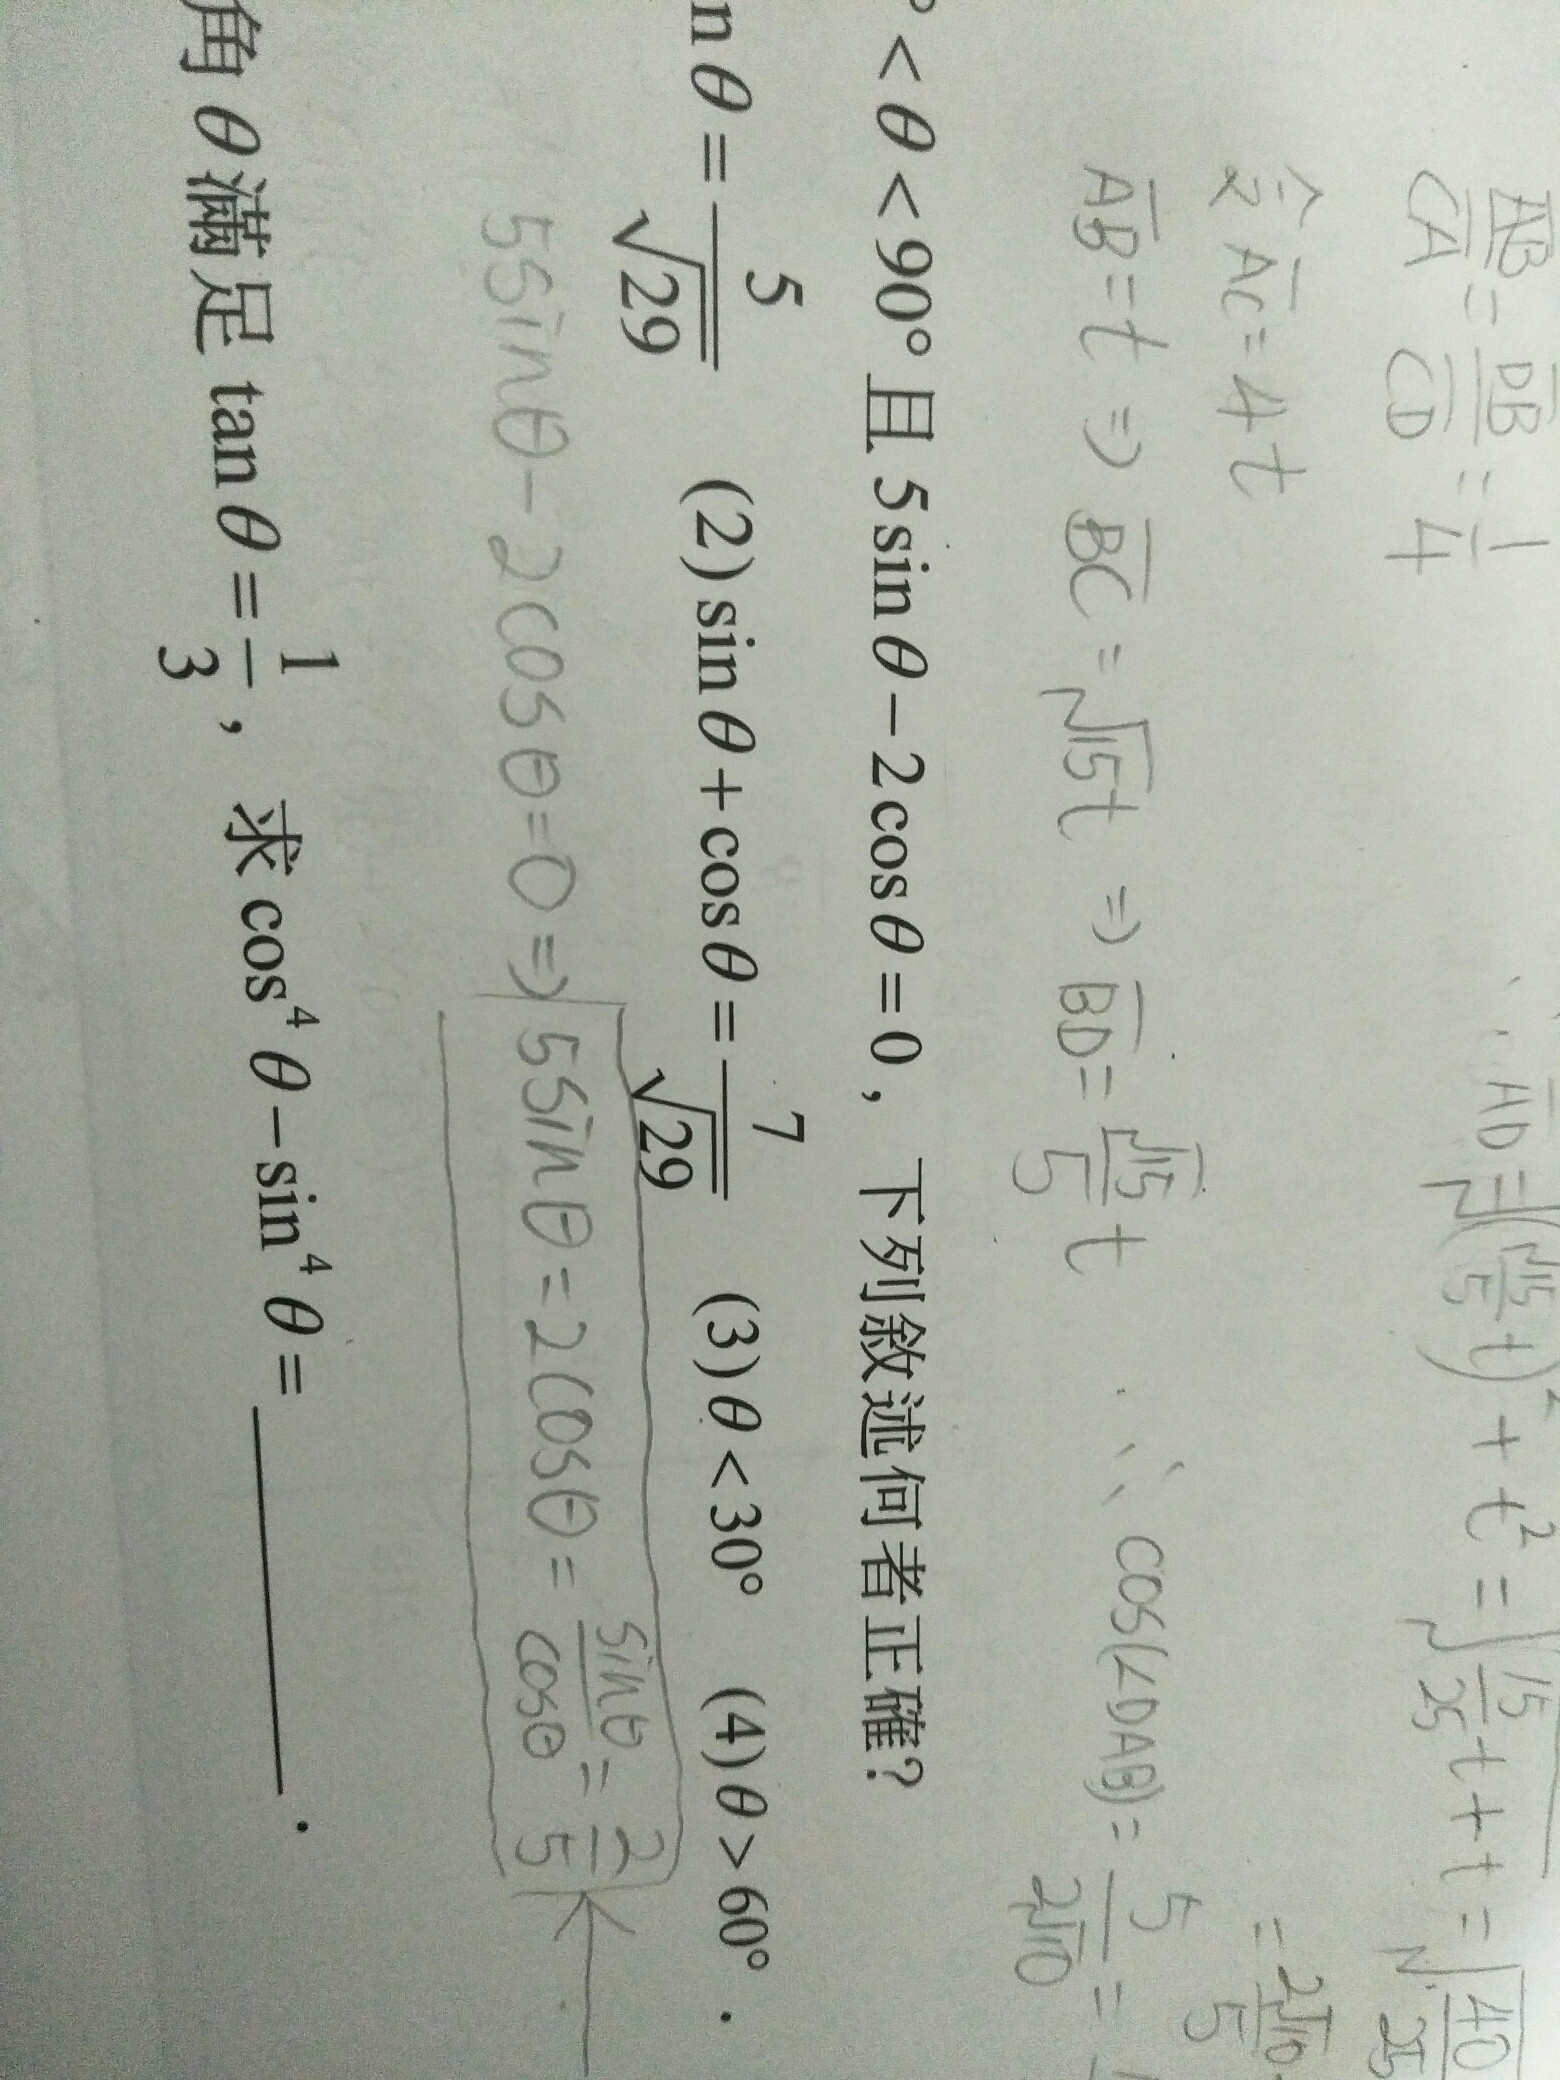 AB/CA = DB/CD = 1/4
∴ AD = √((√15/5 t)² + t²) = √(15/25 t + t) = √(40/25
令 AC = 4t
= 2√10/5
AB = t ⇒ BC = √15t ⇒ BD = √15/5 t ∴ cos(∠DAB) = 5/2√10 =
° < θ < 90° 且 5 sin θ − 2 cos θ = 0, 下列敘述何者正確?
n θ = 5/√29 (2) sin θ + cos θ = 7/√29 (3) θ < 30° (4) θ > 60° .
5sinθ − 2cosθ = 0 ⇒ 5sinθ = 2cosθ = sinθ/cosθ = 2/5 ←
角 θ 滿足 tan θ = 1/3, 求 cos⁴ θ − sin⁴ θ = ________ .